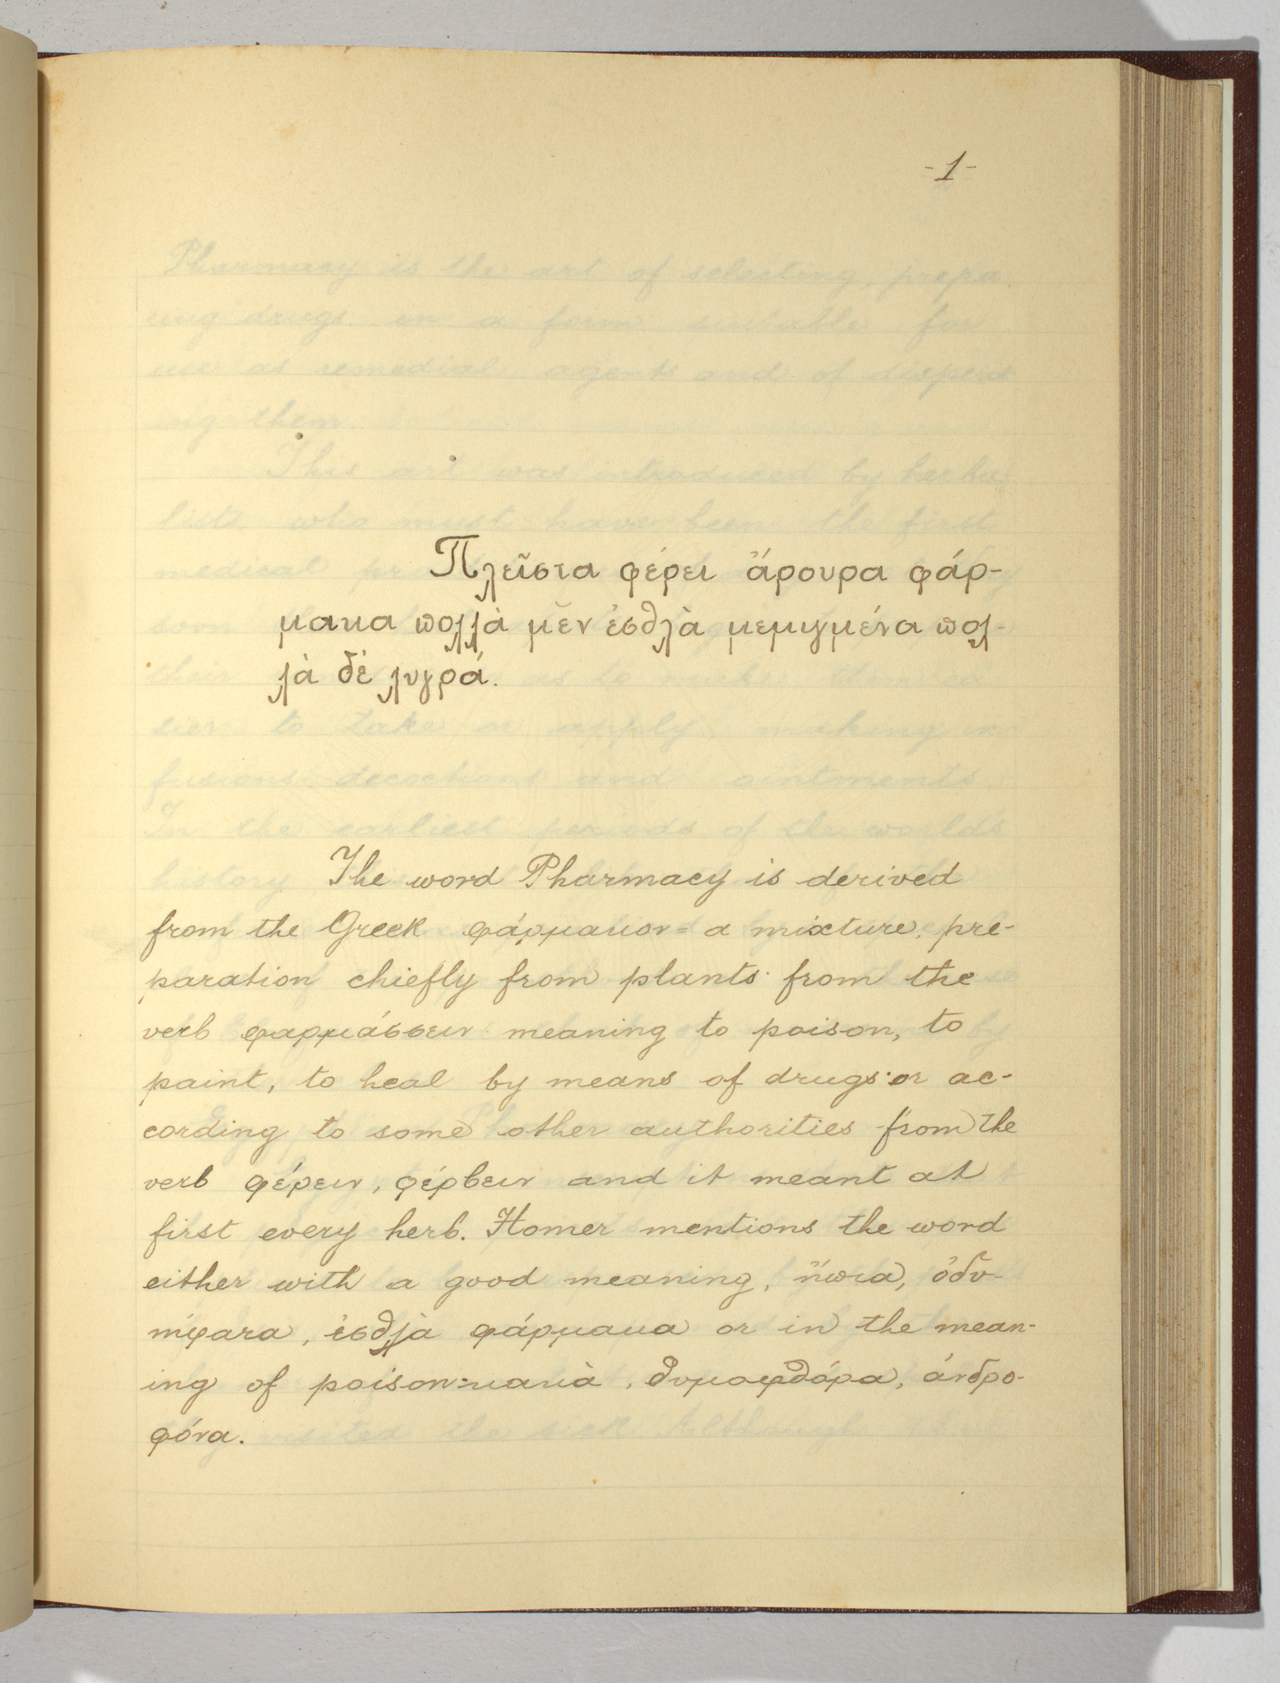 -1-
Πλεῖστα φέρει ἄρουρα φάρ-
μακα πολλὰ μὲν ἐσθλὰ μεμιγμένα πολ-
λὰ δὲ λυγρά.
The word Pharmacy is derived
from the Greek φάρμακον = a mixture, pre-
paration chiefly from plants from the
verb φαρμάσσειν meaning to poison, to
paint, to heal by means of drugs or ac-
cording to some other authorities from the
verb φέρειν, φέρβειν and it meant at
first every herb. Homer mentions the word
either with a good meaning, ἤπια, ὀδυ-
νήφαρα, ἐσθλὰ φάρμακα or in the mean-
ing of poison: κακὰ, θυμοφθόρα, ἀνδρο-
φόνα.